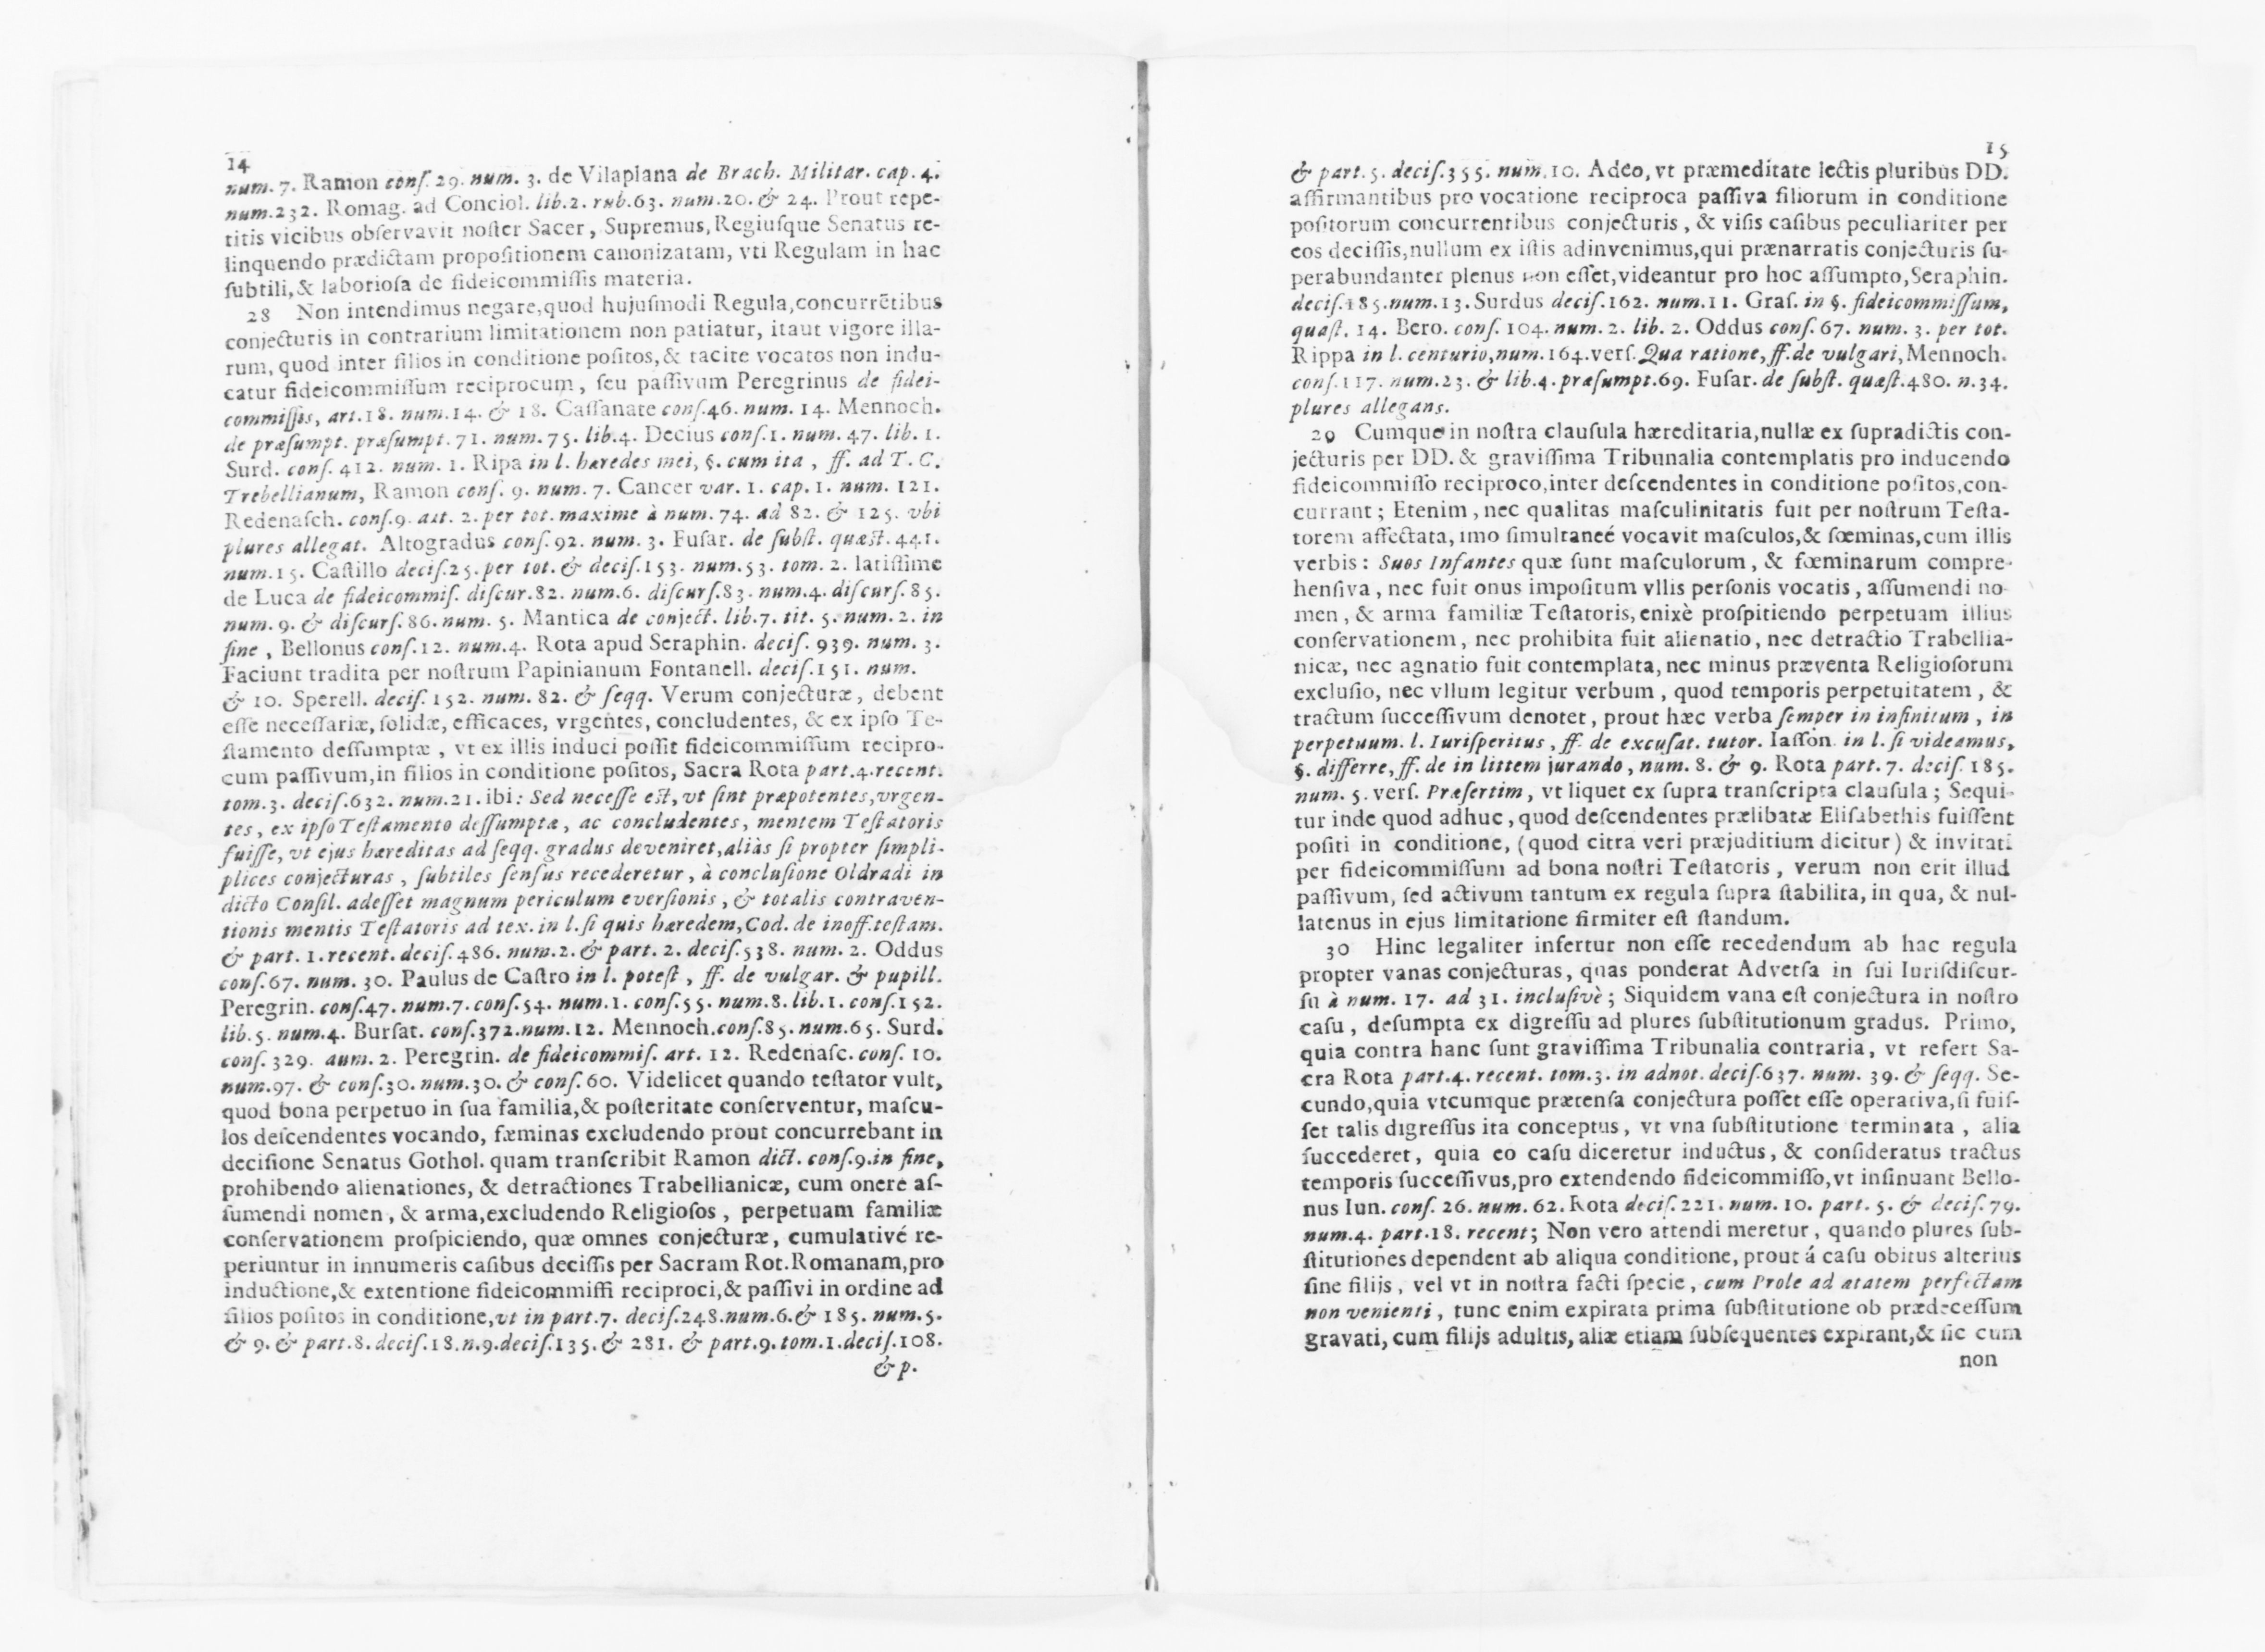 14
num. 7. Ramon conſ. 29. num. 3. de Vilaplana de Brach. Militar. cap. 4.
num.232. Romag. ad Conciol. lib.2. rub.63. num.20. & 24. Prout repe-
titis vicibus obſervavit noſter Sacer, Supremus, Regiuſque Senatus re-
linquendo prædictam propoſitionem canonizatam, vti Regulam in hac
ſubtili, & laborioſa de fideicommiſſis materia.
28 Non intendimus negare, quod hujuſmodi Regula, concurrẽtibus
conjecturis in contrarium limitationem non patiatur, itaut vigore illa-
rum, quod inter filios in conditione poſitos, & tacite vocatos non indu-
catur fideicommiſſum reciprocum, ſeu paſſivum Peregrinus de fidei-
commiſſis, art.18. num.14. & 18. Caſſanate conſ.46. num. 14. Mennoch.
de præſumpt. præſumpt. 71. num. 75. lib.4. Decius conſ.1. num. 47. lib. 1.
Surd. conſ. 412. num. 1. Ripa in l. hæredes mei, §. cum ita, ff. ad T. C.
Trebellianum, Ramon conſ. 9. num. 7. Cancer var. 1. cap. 1. num. 121.
Redenaſch. conſ.9. art. 2. per tot. maxime à num. 74. ad 82. & 125. vbi
plures allegat. Altogradus conſ. 92. num. 3. Fuſar. de ſubſt. quæſt. 441.
num.15. Caſtillo deciſ.25. per tot. & deciſ.153. num.53. tom. 2. latiſſime
de Luca de fideicommiſ. diſcur.82. num.6. diſcurſ.83. num.4. diſcurſ.85.
num. 9. & diſcurſ. 86. num. 5. Mantica de conject. lib.7. tit. 5. num.2. in
fine, Bellonus conſ.12. num.4. Rota apud Seraphin. deciſ. 939. num. 3.
Faciunt tradita per noſtrum Papinianum Fontanell. deciſ.151. num.
& 10. Sperell. deciſ. 152. num. 82. & ſeqq. Verum conjecturæ, debent
eſſe neceſſariæ, ſolidæ, efficaces, vrgentes, concludentes, & ex ipſo Te-
ſtamento deſſumptæ, vt ex illis induci poſſit fideicommiſſum recipro-
cum paſſivum, in filios in conditione poſitos, Sacra Rota part.4.recent.
tom.3. deciſ.632. num.21. ibi: Sed neceſſe eſt, vt ſint præpotentes, vrgen-
tes, ex ipſo Teſtamento deſſumptæ, ac concludentes, mentem Teſtatoris
fuiſſe, vt ejus hæreditas ad ſeqq. gradus deveniret, aliàs ſi propter ſimpli-
plices conjecturas, ſubtiles ſenſus recederetur, à concluſione Oldradi in
dicto Conſil. adeſſet magnum periculum everſionis, & totalis contraven-
tionis mentis Teſtatoris ad tex. in l. ſi quis hæredem, Cod. de inoff. teſtam.
& part. 1. recent. deciſ. 486. num.2. & part. 2. deciſ.538. num. 2. Oddus
conſ.67. num. 30. Paulus de Caſtro in l. poteſt, ff. de vulgar. & pupill.
Peregrin. conſ.47. num.7. conſ.54. num.1. conſ.55. num.8. lib.1. conſ.152.
lib.5. num.4. Burſat. conſ.372.num.12. Mennoch.conſ.85. num.65. Surd.
conſ. 329. aum. 2. Peregrin. de fideicommiſ. art. 12. Redenaſc. conſ. 10.
num.97. & conſ.30. num.30. & conſ. 60. Videlicet quando teſtator vult,
quod bona perpetuo in ſua familia, & poſteritate conſerventur, maſcu-
los deſcendentes vocando, fæminas excludendo prout concurrebant in
deciſione Senatus Gothol. quam tranſcribit Ramon dict. conſ.9.in fine,
prohibendo alienationes, & detractiones Trabellianicæ, cum onere aſ-
ſumendi nomen, & arma, excludendo Religioſos, perpetuam familiæ
conſervationem proſpiciendo, quæ omnes conjecturæ, cumulativé re-
periuntur in innumeris caſibus deciſſis per Sacram Rot. Romanam, pro
inductione, & extentione fideicommiſſi reciproci, & paſſivi in ordine ad
filios poſitos in conditione, vt in part.7. deciſ.248.num.6.& 185. num.5.
& 9. & part.8. deciſ.18.n.9.deciſ.135.& 281. & part.9. tom.1.deciſ.108.
& p.
15
& part. 5. deciſ.355. num.10. Adeo, vt præmeditate lectis pluribus DD.
affirmantibus pro vocatione reciproca paſſiva filiorum in conditione
poſitorum concurrentibus conjecturis, & viſis caſibus peculiariter per
eos deciſſis, nullum ex iſtis adinvenimus, qui prænarratis conjecturis ſu-
perabundanter plenus non eſſet, videantur pro hoc aſſumpto, Seraphin.
deciſ.185.num.13. Surdus deciſ.162. num.11. Graſ. in §. fideicommiſſum,
quæſt. 14. Bero. conſ. 104. num. 2. lib. 2. Oddus conſ. 67. num. 3. per tot.
Rippa in l. centurio, num.164.verſ. Qua ratione, ff. de vulgari, Mennoch.
conſ.117. num.23. & lib.4. præſumpt.69. Fuſar. de ſubſt. quæſt.480. n.34.
plures allegans.
29 Cumque in noſtra clauſula hæreditaria, nullæ ex ſupradictis con-
jecturis per DD. & graviſſima Tribunalia contemplatis pro inducendo
fideicommiſſo reciproco, inter deſcendentes in conditione poſitos, con-
currant; Etenim, nec qualitas maſculinitatis fuit per noſtrum Teſta-
torem affectata, imo ſimultaneé vocavit maſculos, & fœminas, cum illis
verbis: Suos Infantes quæ ſunt maſculorum, & fœminarum compre-
henſiva, nec fuit onus impoſitum vllis perſonis vocatis, aſſumendi no-
men, & arma familiæ Teſtatoris, enixè proſpitiendo perpetuam illius
conſervationem, nec prohibita fuit alienatio, nec detractio Trabellia-
nicæ, nec agnatio fuit contemplata, nec minus præventa Religioſorum
excluſio, nec vllum legitur verbum, quod temporis perpetuitatem, &
tractum ſucceſſivum denotet, prout hæc verba ſemper in infinitum, in
perpetuum. l. Iuriſperitus, ff. de excuſat. tutor. Iaſſon. in l. ſi videamus,
§. differre, ff. de in littem jurando, num. 8. & 9. Rota part. 7. deciſ. 185.
num. 5. verſ. Præſertim, vt liquet ex ſupra tranſcripta clauſula; Sequi-
tur inde quod adhuc, quod deſcendentes prælibatæ Eliſabethis fuiſſent
poſiti in conditione, (quod citra veri præjuditium dicitur) & invitati
per fideicommiſſum ad bona noſtri Teſtatoris, verum non erit illud
paſſivum, ſed activum tantum ex regula ſupra ſtabilita, in qua, & nul-
latenus in ejus limitatione firmiter eſt ſtandum.
30 Hinc legaliter infertur non eſſe recedendum ab hac regula
propter vanas conjecturas, quas ponderat Adverſa in ſui Iuriſdiſcur-
ſu à num. 17. ad 31. incluſivè; Siquidem vana eſt conjectura in noſtro
caſu, deſumpta ex digreſſu ad plures ſubſtitutionum gradus. Primo,
quia contra hanc ſunt graviſſima Tribunalia contraria, vt refert Sa-
cra Rota part.4. recent. tom.3. in adnot. deciſ.637. num. 39. & ſeqq. Se-
cundo, quia vtcumque prætenſa conjectura poſſet eſſe operativa, ſi fuiſ-
ſet talis digreſſus ita conceptus, vt vna ſubſtitutione terminata, alia
ſuccederet, quia eo caſu diceretur inductus, & conſideratus tractus
temporis ſucceſſivus, pro extendendo fideicommiſſo, vt inſinuant Bello-
nus Iun. conſ. 26. num. 62. Rota deciſ. 221. num. 10. part. 5. & deciſ. 79.
num.4. part.18. recent; Non vero attendi meretur, quando plures ſub-
ſtitutiones dependent ab aliqua conditione, prout á caſu obitus alterius
ſine filijs, vel vt in noſtra facti ſpecie, cum Prole ad ætatem perfectam
non venienti, tunc enim expirata prima ſubſtitutione ob prædeceſſum
gravati, cum filijs adultis, aliæ etiam ſubſequentes expirant, & ſic cum
non